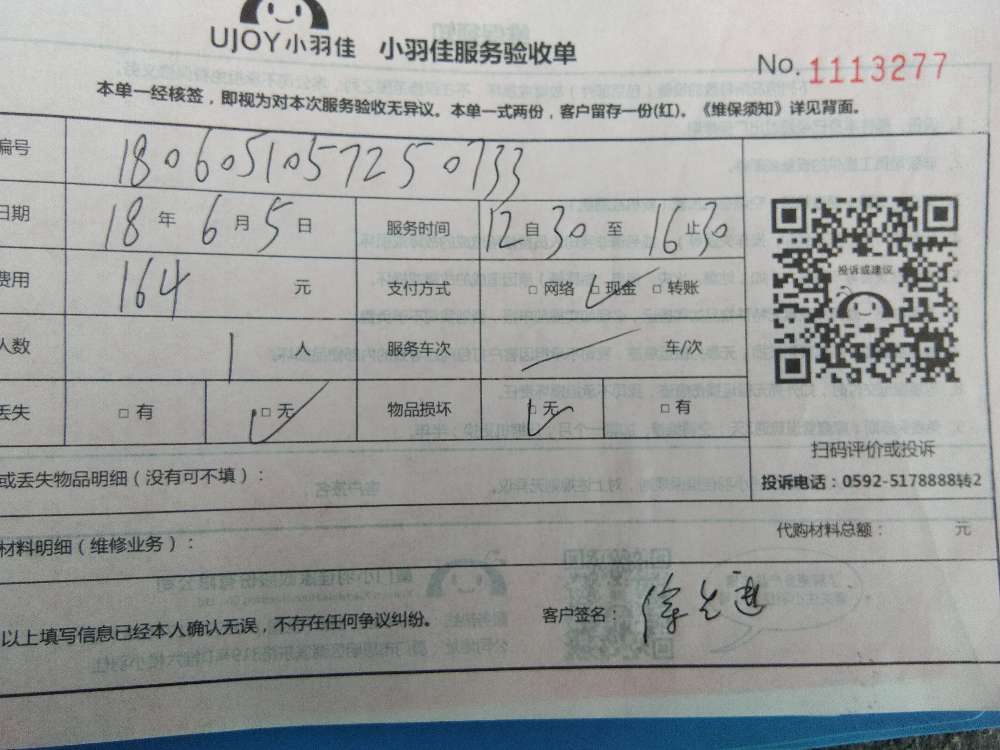 UJOY小羽佳 小羽佳服务验收单
No. 1113277
本单一经核签，即视为对本次服务验收无异议。本单一式两份，客户留存一份(红)。《维保须知》详见背面。
编号 1806051057250733
日期 18 年 6 月 5 日 服务时间 12 自 30 至 16 止 30
费用 164 元 支付方式 □网络 □现金 □转账
人数 1 人 服务车次 车/次
丢失 □有 □无 物品损坏 □无 □有
投诉或建议
扫码评价或投诉
投诉电话：0592-5178888转2
或丢失物品明细（没有可不填）：
代购材料总额： 元
材料明细（维修业务）：
以上填写信息已经本人确认无误，不存在任何争议纠纷。 客户签名：